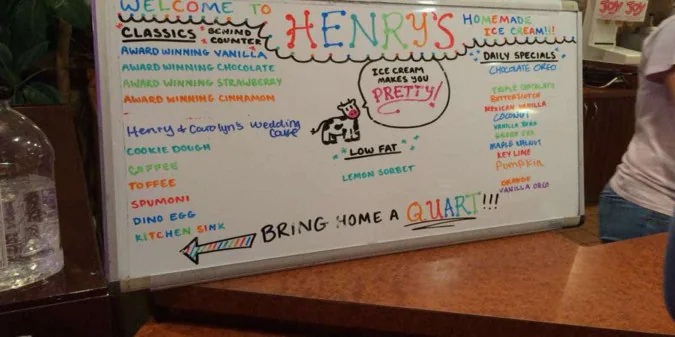 WELCOME TO
HENRY'S
HOMEMADE
ICE CREAM!!!
CLASSICS * BEHIND
COUNTER
AWARD WINNING VANILLA
AWARD WINNING CHOCOLATE
AWARD WINNING STRAWBERRY
AWARD WINNING CINNAMON
Henry & Carolyn's Wedding
Cake
COOKIE DOUGH
COFFEE
TOFFEE
SPUMONI
DINO EGG
KITCHEN SINK
ICE CREAM
MAKES YOU
PRETTY!
* LOW FAT *
LEMON SORBET
BRING HOME A QUART!!!
* DAILY SPECIALS *
CHOCOLATE OREO
TRIPLE CHOCOLATE
BUTTERSCOTCH
MEXICAN VANILLA
COCONUT
VANILLA BEAN
GREEN TEA
MAPLE WALNUT
KEY LIME
PUMPKIN
ORANGE
VANILLA OREO
JOY JOY